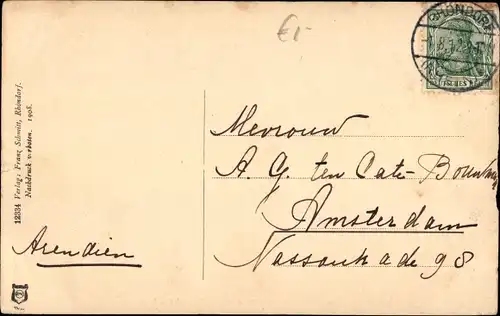 €-
RHÖNDORF
Mevrouw
A. G. ten Cate-Bouwens
Amsterdam
Nassaukade 98
Arendien
12334 Verlag: Franz Schmitt, Rhöndorf.
Nachdruck verboten. 1908.